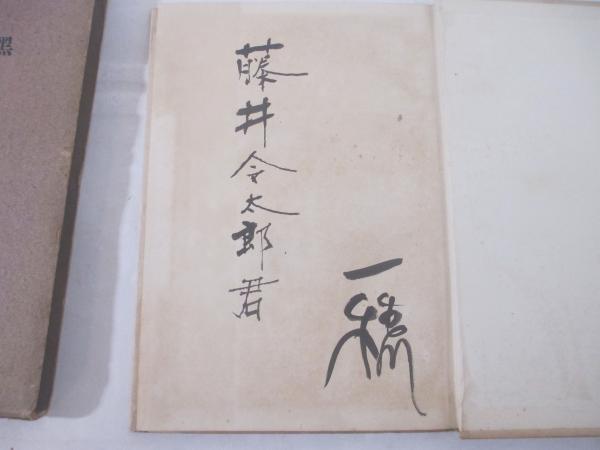 藤井令太郎君
一穂
黑